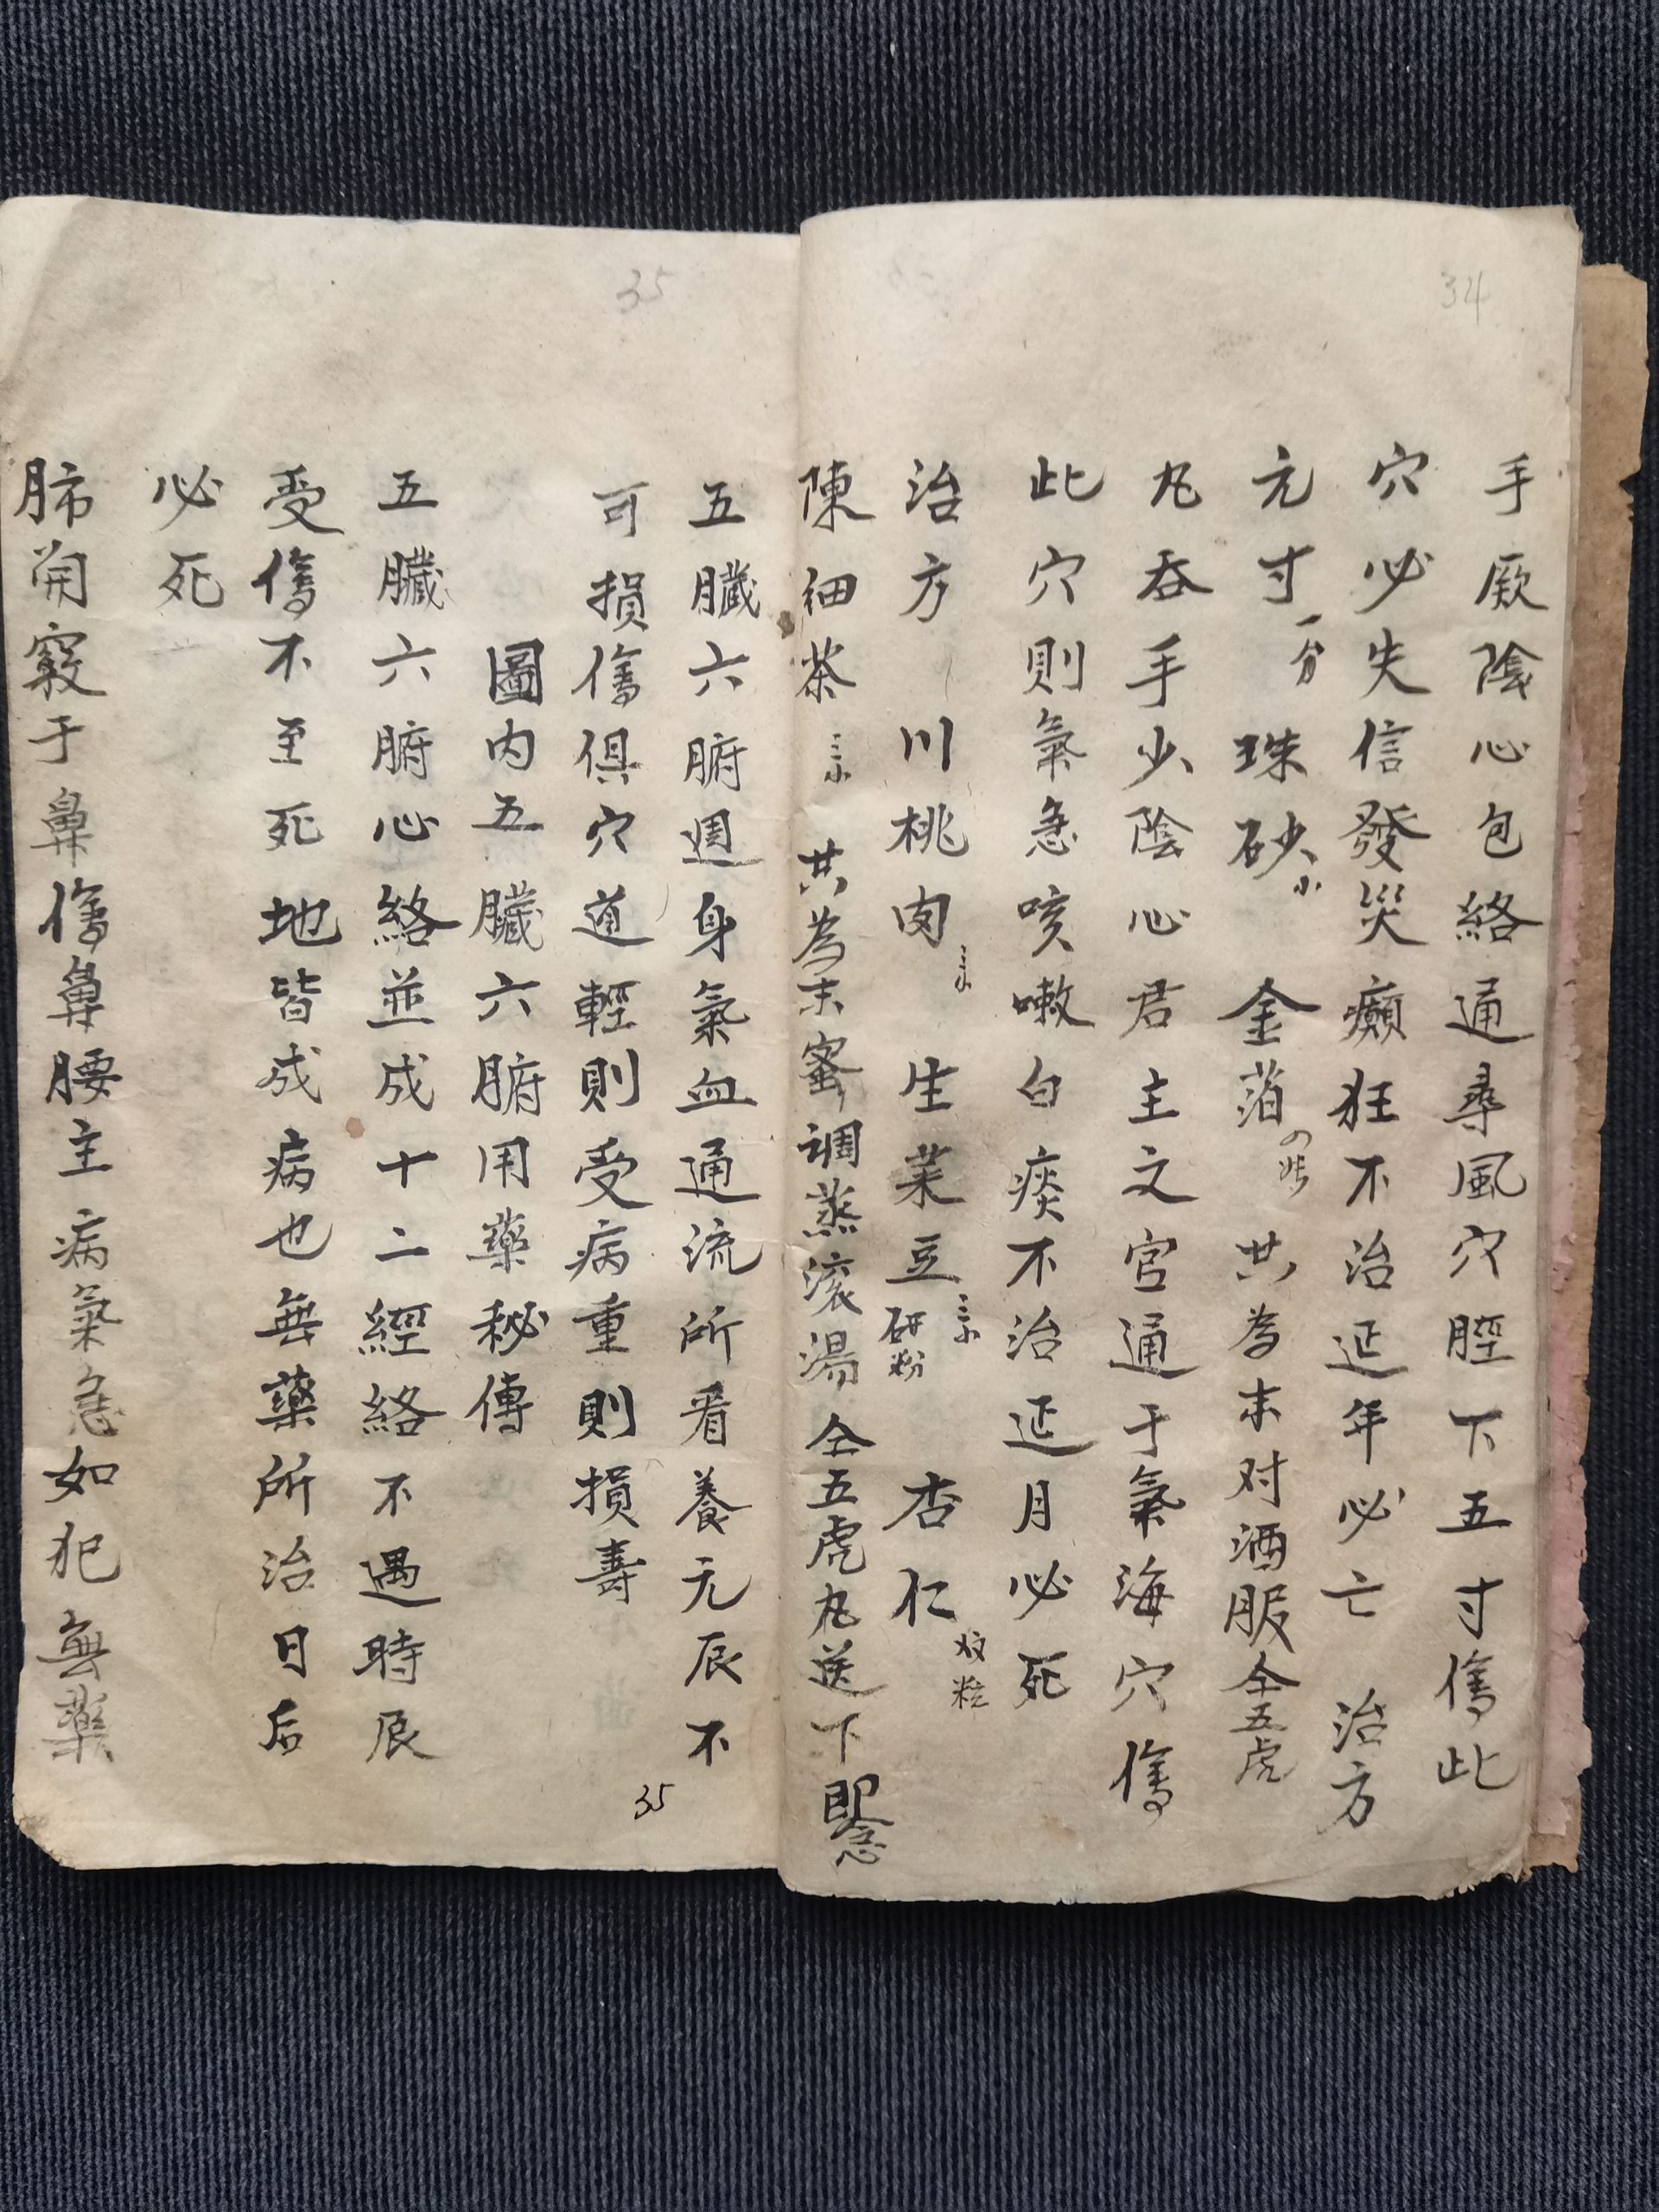 34
手厥陰心包絡通尋風穴腔下五寸傷此
穴必失信發災癲狂不治延年必亡 治方
元寸一分 珠砂 金箔 共為末对酒服仝五虎
丸吞手少陰心君主文官通于氣海穴傷
此穴則氣急咳嗽白痰不治延月必死
治方 川桃肉 生菉豆 研粉 杏仁 粒
陳細茶 共為末蜜調蒸滚湯仝五虎丸送下即愈
35
五臟六腑週身氣血通流所看養元辰不
可損傷俱穴道輕則受病重則損壽
圖内五臟六腑用藥秘傳
五臟六腑心絡並成十二經絡不遇時辰
受傷不至死地皆成病也無藥所治日后
必死
肺開竅于鼻傷鼻腰主病氣急如犯無藥
35